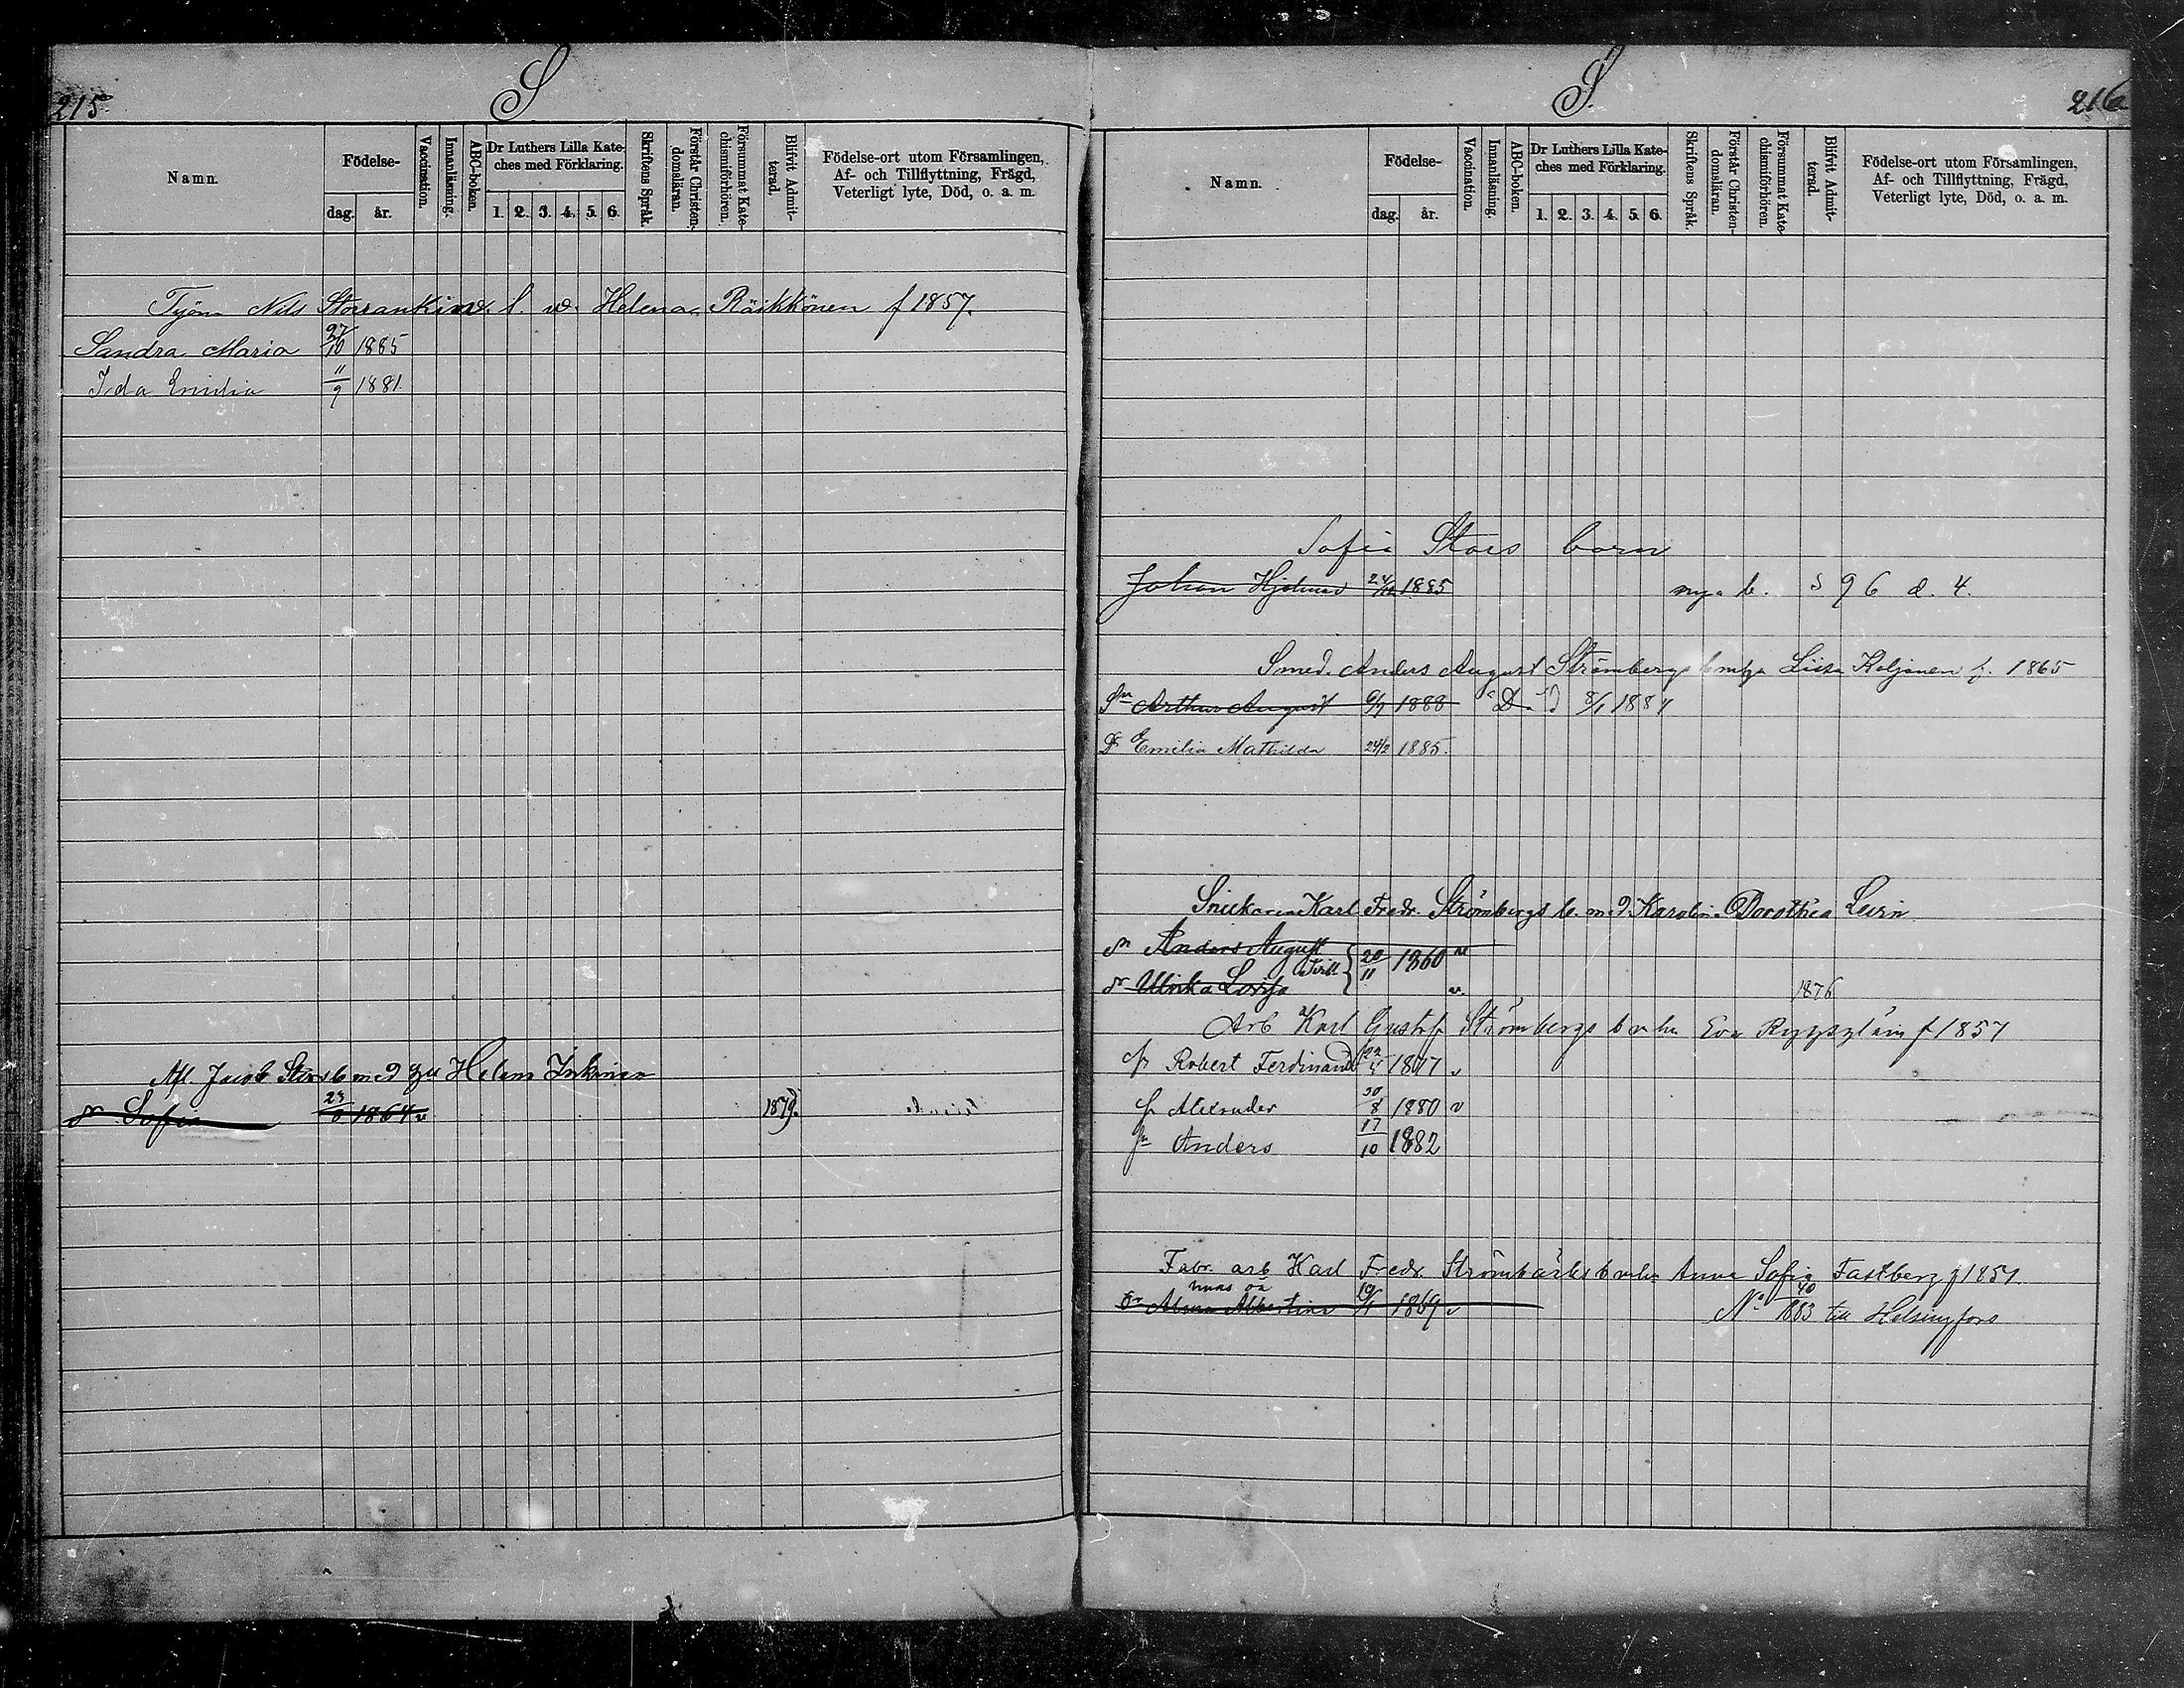 215.
S
Namn.
Födelse-
dag.
år.
Vaccination.
Innanläsning.
ABC-boken.
Dr Luthers Lilla Kate-
ches med Förklaring.
1. 2. 3. 4. 5. 6.
Skriftens Språk.
Förstår Christen-
domsläran.
Försummat Kate-
chismiförhören.
Blifvit Admit-
terad.
Födelse-ort utom Församlingen,
Af- och Tillflyttning, Frägd,
Veterligt lyte, Död, o. a. m.
Nils Storankin Helena Räikkönen f 1857.
Sandra Maria 27/10 1885
Ida Emilia 11/9 1881.
Jacob Stors b m d Helena Inkinen
Sofia 23 1864 v 1879.
S.
216
Namn.
Födelse-
dag.
år.
Vaccination.
Innanläsning.
ABC-boken.
Dr Luthers Lilla Kate-
ches med Förklaring.
1. 2. 3. 4. 5. 6.
Skriftens Språk.
Förstår Christen-
domsläran.
Försummat Kate-
chismiförhören.
Blifvit Admit-
terad.
Födelse-ort utom Församlingen,
Af- och Tillflyttning, Frägd,
Veterligt lyte, Död, o. a. m.
Sofia Stors barn
Johan Hjalmar 24/12 1885 nya b. S 96 d. 4.
Smed. Anders August Strömbergs b m hu Liisa Koljonen f. 1865
Arthur August 6/7 1888 D. 8/1
Dr Emilia Mathilda 24/2 1885.
Snickaren Karl Fredr. Strömbergs b. m. d. Karolin. Dorothea
Anders August
tvill. 20/11 1860 v
Ulrika Lovisa v. 1876
Arb Karl Gustaf Strömbergs b m hu Eva f 1857
Robert Ferdinand 1877 v
Alexander 30/8 1880 v
Anders 17/10 1882
Fabr. arb Karl Fredr. Strömbärks b m hu Anna Sofia Fastberg
Alma Albertina 1869 v No 40/1883 till Helsingfors